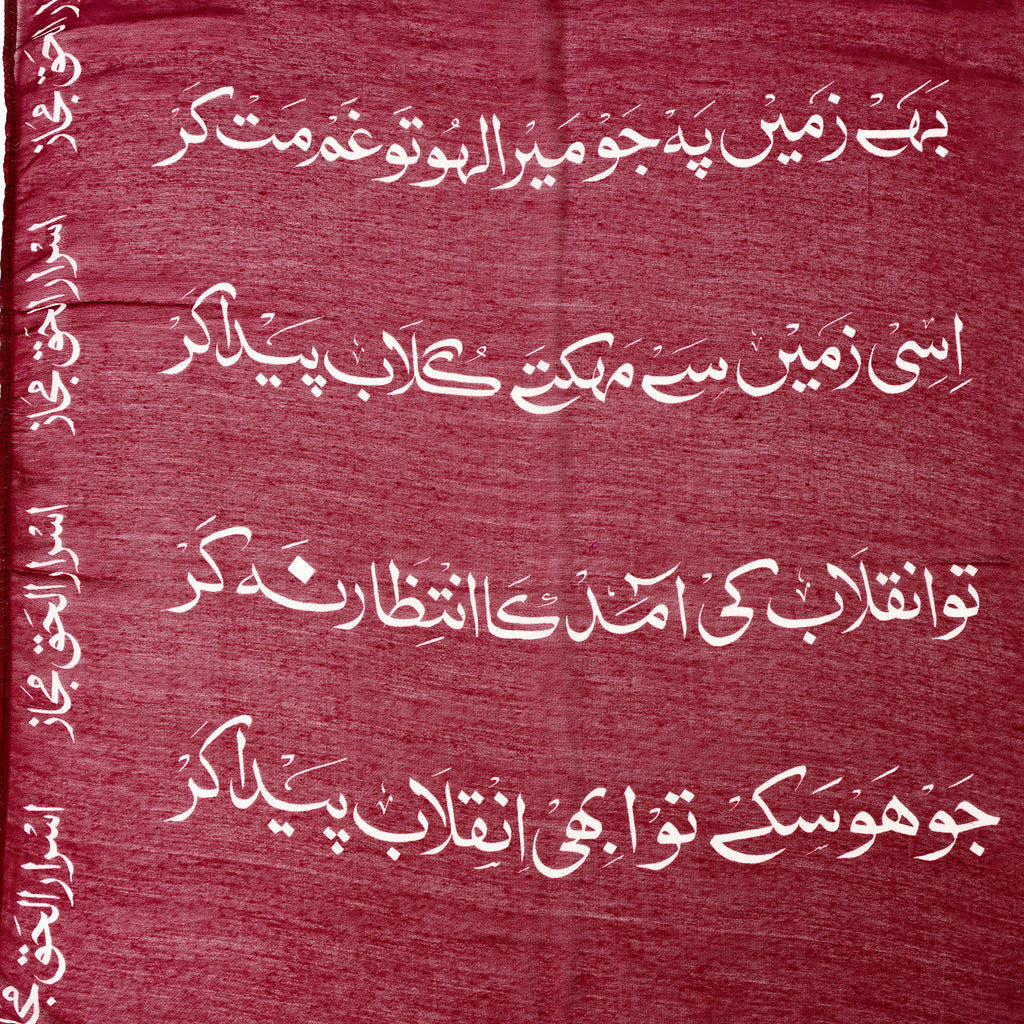 بَہے زَمیں پَہ جَو مَیرا لہُو تَو غَم مَت کَر
اِسی زَمیں سے مَہکتے گُلَاب پَیدا کَر
تو انقلَاب کی آمَد کا انتِظار نَہ کَر
جَو ھَو سَکے تو ابھی اِنقِلَاب پَیدا کَر
اسرار الحَق مجَاز
اسرار الحَق مجَاز
اسرار الحَق مجَاز
اسرار الحَق مجَاز